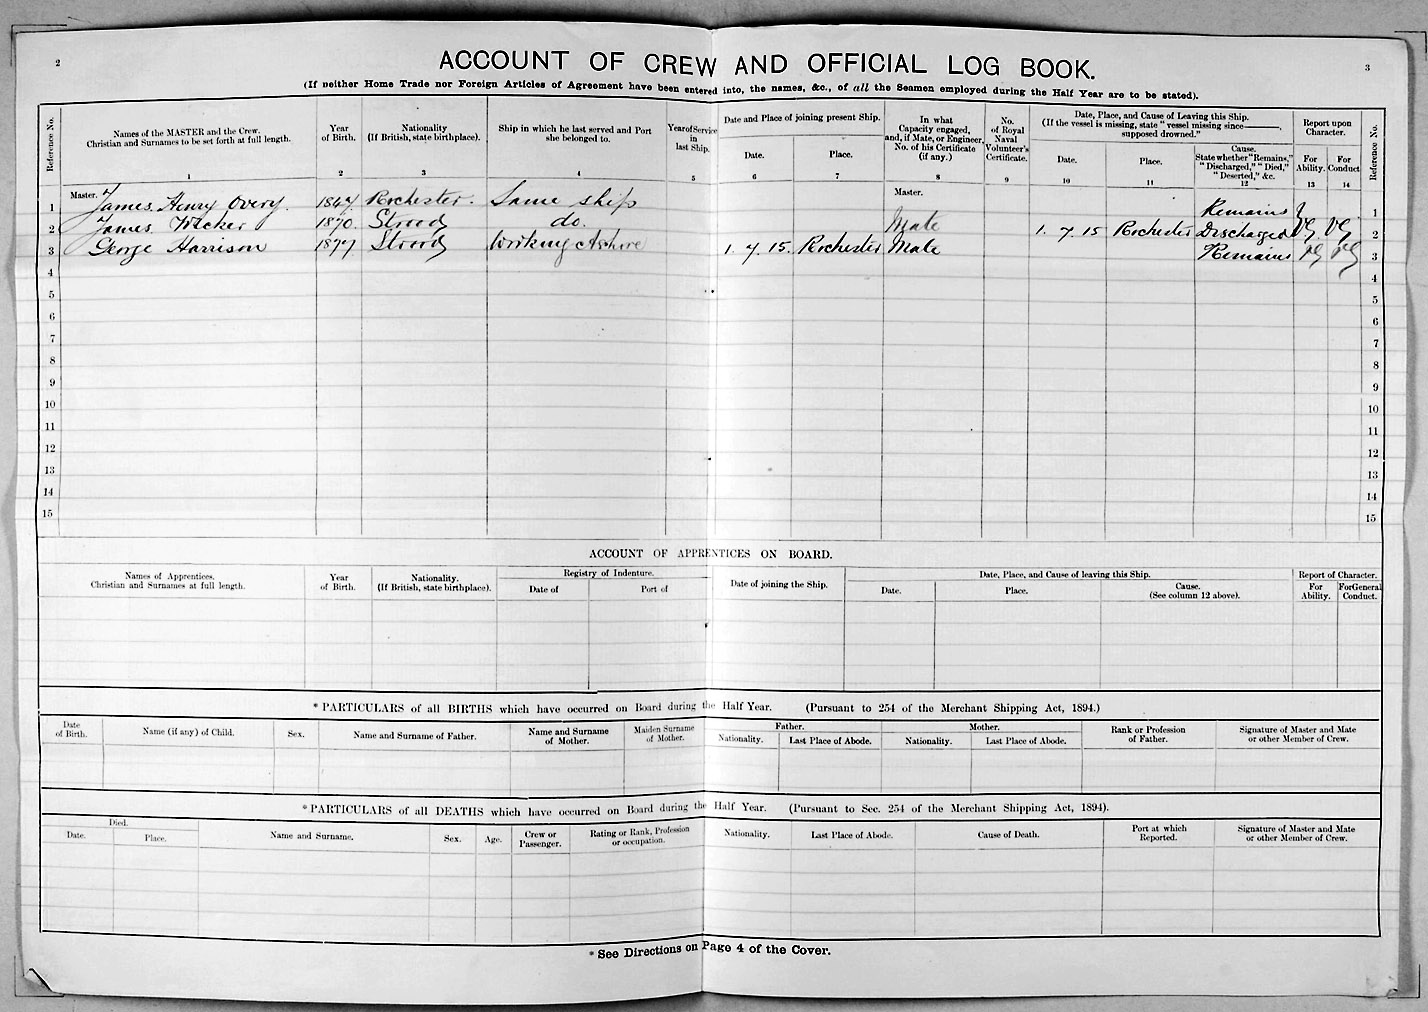 2
3
ACCOUNT OF CREW AND OFFICIAL LOG BOOK.
(If neither Home Trade nor Foreign Articles of Agreement have been entered into, the names, &c., of all the Seamen employed during the Half Year are to be stated).
Reference No.
Names of the MASTER and the Crew.
Christian and Surnames to be set forth at full length.
1
Year
of Birth.
2
Nationality
(If British, state birthplace).
3
Ship in which he last served and Port
she belonged to.
4
Year of Service
in
last Ship.
5
Date and Place of joining present Ship.
Date.
6
Place.
7
In what
Capacity engaged,
and, if Mate, or Engineer,
No. of his Certificate
(if any.)
8
No.
of Royal
Naval
Volunteer's
Certificate.
9
Date, Place, and Cause of Leaving this Ship.
(If the vessel is missing, state "vessel missing since———,
supposed drowned."
Date.
10
Place.
11
Cause.
State whether "Remains,"
"Discharged," "Died,"
"Deserted," &c.
12
Report upon
Character.
For
Ability.
13
For
Conduct
14
Reference No.
1 Master. James Henry Overy. 1847 Rochester. Same ship Master. Remains 1
2 James Tricker 1870. Strood do. Mate 1. 7 15 Rochester Discharged VG VG 2
3 George Harrison 1877. Strood Working Ashore 1. 7. 15. Rochester Mate Remains VG VG 3
4 4
5 5
6 6
7 7
8 8
9 9
10 10
11 11
12 12
13 13
14 14
15 15
ACCOUNT OF APPRENTICES ON BOARD.
Names of Apprentices.
Christian and Surnames at full length.
Year
of Birth.
Nationality.
(If British, state birthplace).
Registry of Indenture.
Date of
Port of
Date of joining the Ship.
Date, Place, and Cause of leaving this Ship.
Date.
Place.
Cause.
(See column 12 above).
Report of Character.
For
Ability.
For General
Conduct.
* PARTICULARS of all BIRTHS which have occurred on Board during the Half Year. (Pursuant to 254 of the Merchant Shipping Act, 1894.)
Date
of Birth.
Name (if any) of Child.
Sex.
Name and Surname of Father.
Name and Surname
of Mother.
Maiden Surname
of Mother.
Father.
Nationality.
Last Place of Abode.
Mother.
Nationality.
Last Place of Abode.
Rank or Profession
of Father.
Signature of Master and Mate
or other Member of Crew.
* PARTICULARS of all DEATHS which have occurred on Board during the Half Year. (Pursuant to Sec. 254 of the Merchant Shipping Act, 1894).
Died.
Date.
Place.
Name and Surname.
Sex.
Age.
Crew or
Passenger.
Rating or Rank, Profession
or occupation.
Nationality.
Last Place of Abode.
Cause of Death.
Port at which
Reported.
Signature of Master and Mate
or other Member of Crew.
* See Directions on Page 4 of the Cover.